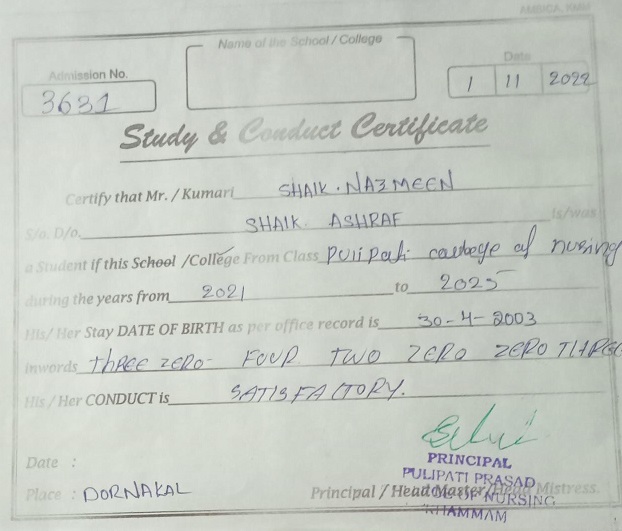 AMBICA, KMM
Name of the School / College
Date
Admission No.
3631
1 11 2022
Study & Conduct Certificate
Certify that Mr. / Kumari SHAIK. NAZMEEN
S/o. D/o. SHAIK. ASHRAF Is/was
a Student if this School /College From Class Pulipati college of nusing
during the years from 2021 to 2025
His/ Her Stay DATE OF BIRTH as per office record is 30-4-2003
inwords THREE ZERO- FOUR TWO ZERO ZERO THREE
His / Her CONDUCT is SATISFACTORY.
Date :
PRINCIPAL
PULIPATI PRASAD
Place : DORNAKAL Principal / Head Master/Head Mistress.
NURSING
KHAMMAM